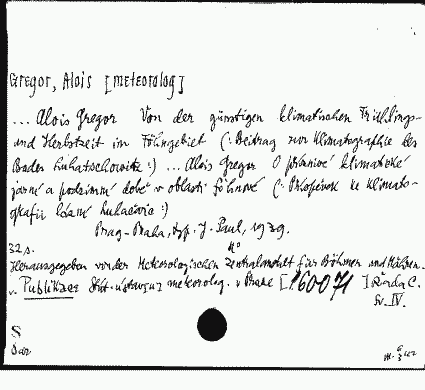 Gregor, Alois [meteorolog]
... Alois Gregor Von der günstigen klimatischen Frühlings-
und Herbstzeit im Föhngebiet (: Beitrag zur Klimatographie des
Bades Luhatschowitz :) ... Alois Gregor O příznivé klimatické
jarní a podzimní době v oblasti föhnové (: Příspěvek ke klimato-
grafii lázní Luhačovic :)
Prag-Praha, typ. J. Paul, 1939.
32 s. 4°
Herausgegeben von der Meteorologischen Zentralanstalt für Böhmen und Mähren.
v. Publikace meteorolog. v Praze [160071] Řada C.
Sv. IV.
S
Dar